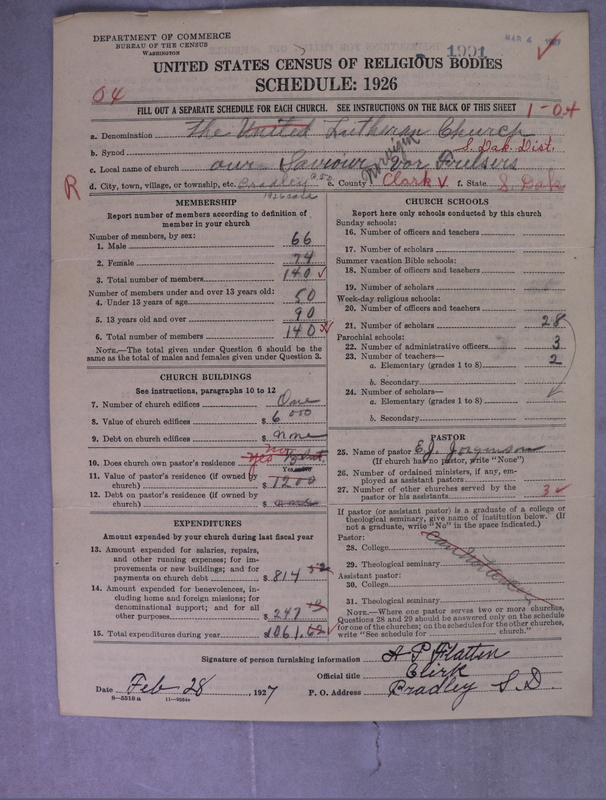 DEPARTMENT OF COMMERCE
BUREAU OF THE CENSUS
WASHINGTON
MAR 4
1991
UNITED STATES CENSUS OF RELIGIOUS BODIES
SCHEDULE: 1926
04
FILL OUT A SEPARATE SCHEDULE FOR EACH CHURCH. SEE INSTRUCTIONS ON THE BACK OF THIS SHEET
1-04
a. Denomination The United Lutheran Church
b. Synod S. Dak. Dist.
c. Local name of church Our Saviour Vor Frelsers
Norwegian
R
d. City, town, village, or township, etc. Bradley e. County Clark f. State S. Dak
MEMBERSHIP
Report number of members according to definition of
member in your church
Number of members, by sex:
1. Male 66
2. Female 74
3. Total number of members 140
Number of members under and over 13 years old:
4. Under 13 years of age 50
5. 13 years old and over 90
6. Total number of members 140
NOTE.—The total given under Question 6 should be the
same as the total of males and females given under Question 3.
CHURCH BUILDINGS
See instructions, paragraphs 10 to 12
7. Number of church edifices One
8. Value of church edifices $ 6000
9. Debt on church edifices $ None
10. Does church own pastor's residence Yes No
11. Value of pastor's residence (if owned by
church) $ 1200
12. Debt on pastor's residence (if owned by
church) $
EXPENDITURES
Amount expended by your church during last fiscal year
13. Amount expended for salaries, repairs,
and other running expenses; for im-
provements or new buildings; and for
payments on church debt $ 814
14. Amount expended for benevolences, in-
cluding home and foreign missions; for
denominational support; and for all
other purposes $ 247
15. Total expenditures during year $ 1061.62
CHURCH SCHOOLS
Report here only schools conducted by this church
Sunday schools:
16. Number of officers and teachers
17. Number of scholars
Summer vacation Bible schools:
18. Number of officers and teachers
19. Number of scholars
Week-day religious schools:
20. Number of officers and teachers
21. Number of scholars 28
Parochial schools:
22. Number of administrative officers 3
23. Number of teachers—
a. Elementary (grades 1 to 8) 2
b. Secondary
24. Number of scholars—
a. Elementary (grades 1 to 8)
b. Secondary
PASTOR
25. Name of pastor E.J. Jorginson
(If church has no pastor, write "None")
26. Number of ordained ministers, if any, em-
ployed as assistant pastors
27. Number of other churches served by the
pastor or his assistants 3
If pastor (or assistant pastor) is a graduate of a college or
theological seminary, give name of institution below. (If
not a graduate, write "No" in the space indicated.)
Pastor:
28. College
29. Theological seminary
Assistant pastor:
30. College
31. Theological seminary
NOTE.—Where one pastor serves two or more churches,
Questions 28 and 29 should be answered only on the schedule
for one of the churches; on the schedules for the other churches,
write "See schedule for church."
Signature of person furnishing information A P Flatten
Official title Clirk
Date Feb 28, 1927 P. O. Address Bradley S.D.